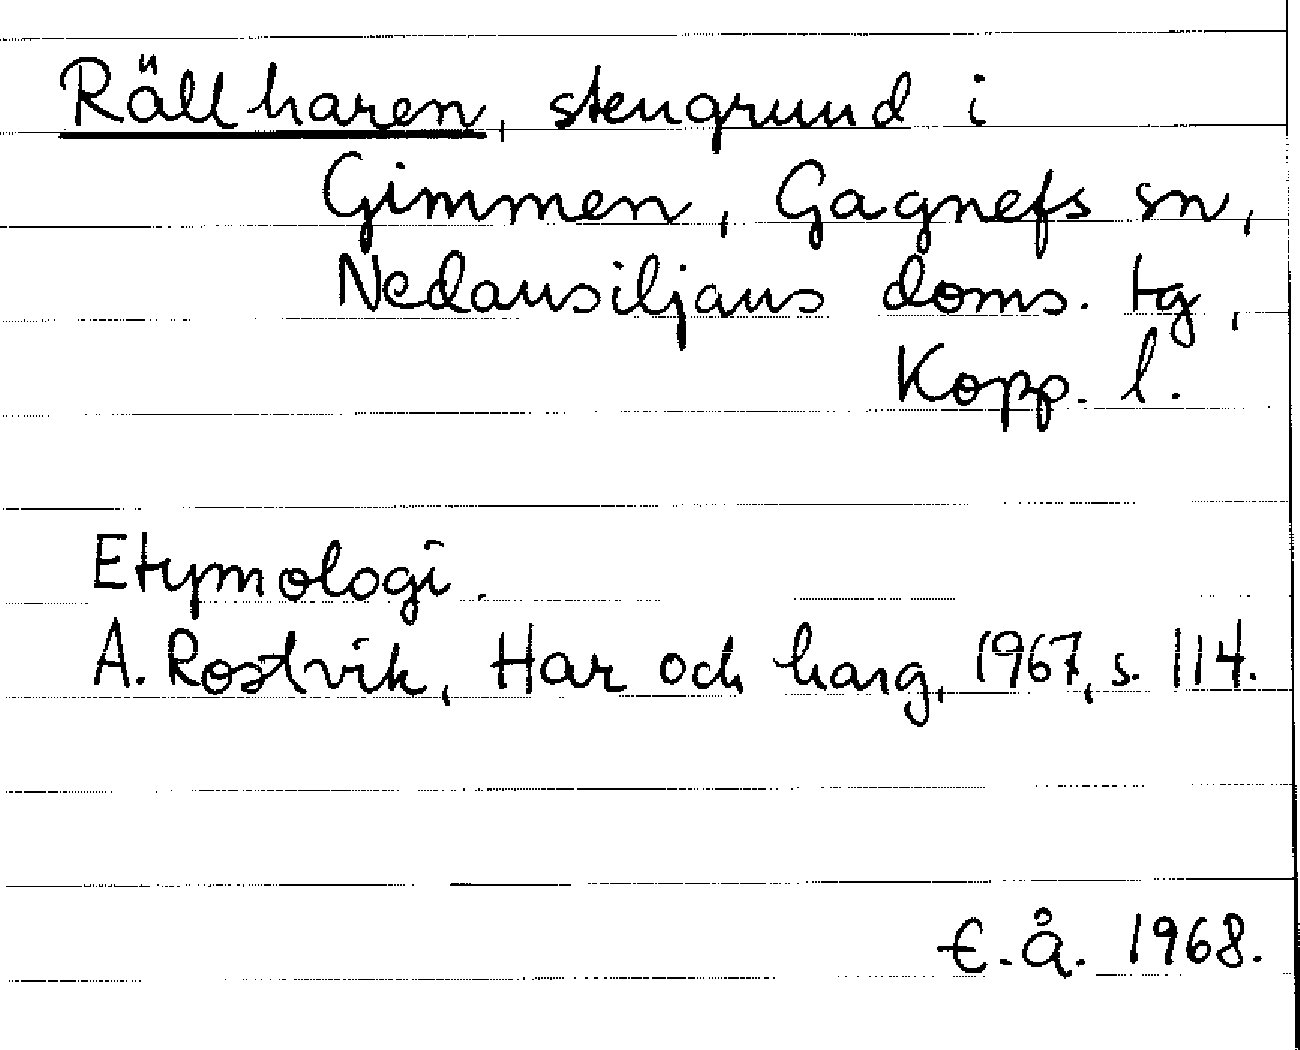 Rällharen, stengrund i
Gimmen, Gagnefs sn,
Nedansiljans doms. tg,
Kopp. l.
Etymologi.
A. Rostvik, Har och harg, 1967, s. 114.
E. Å. 1968.